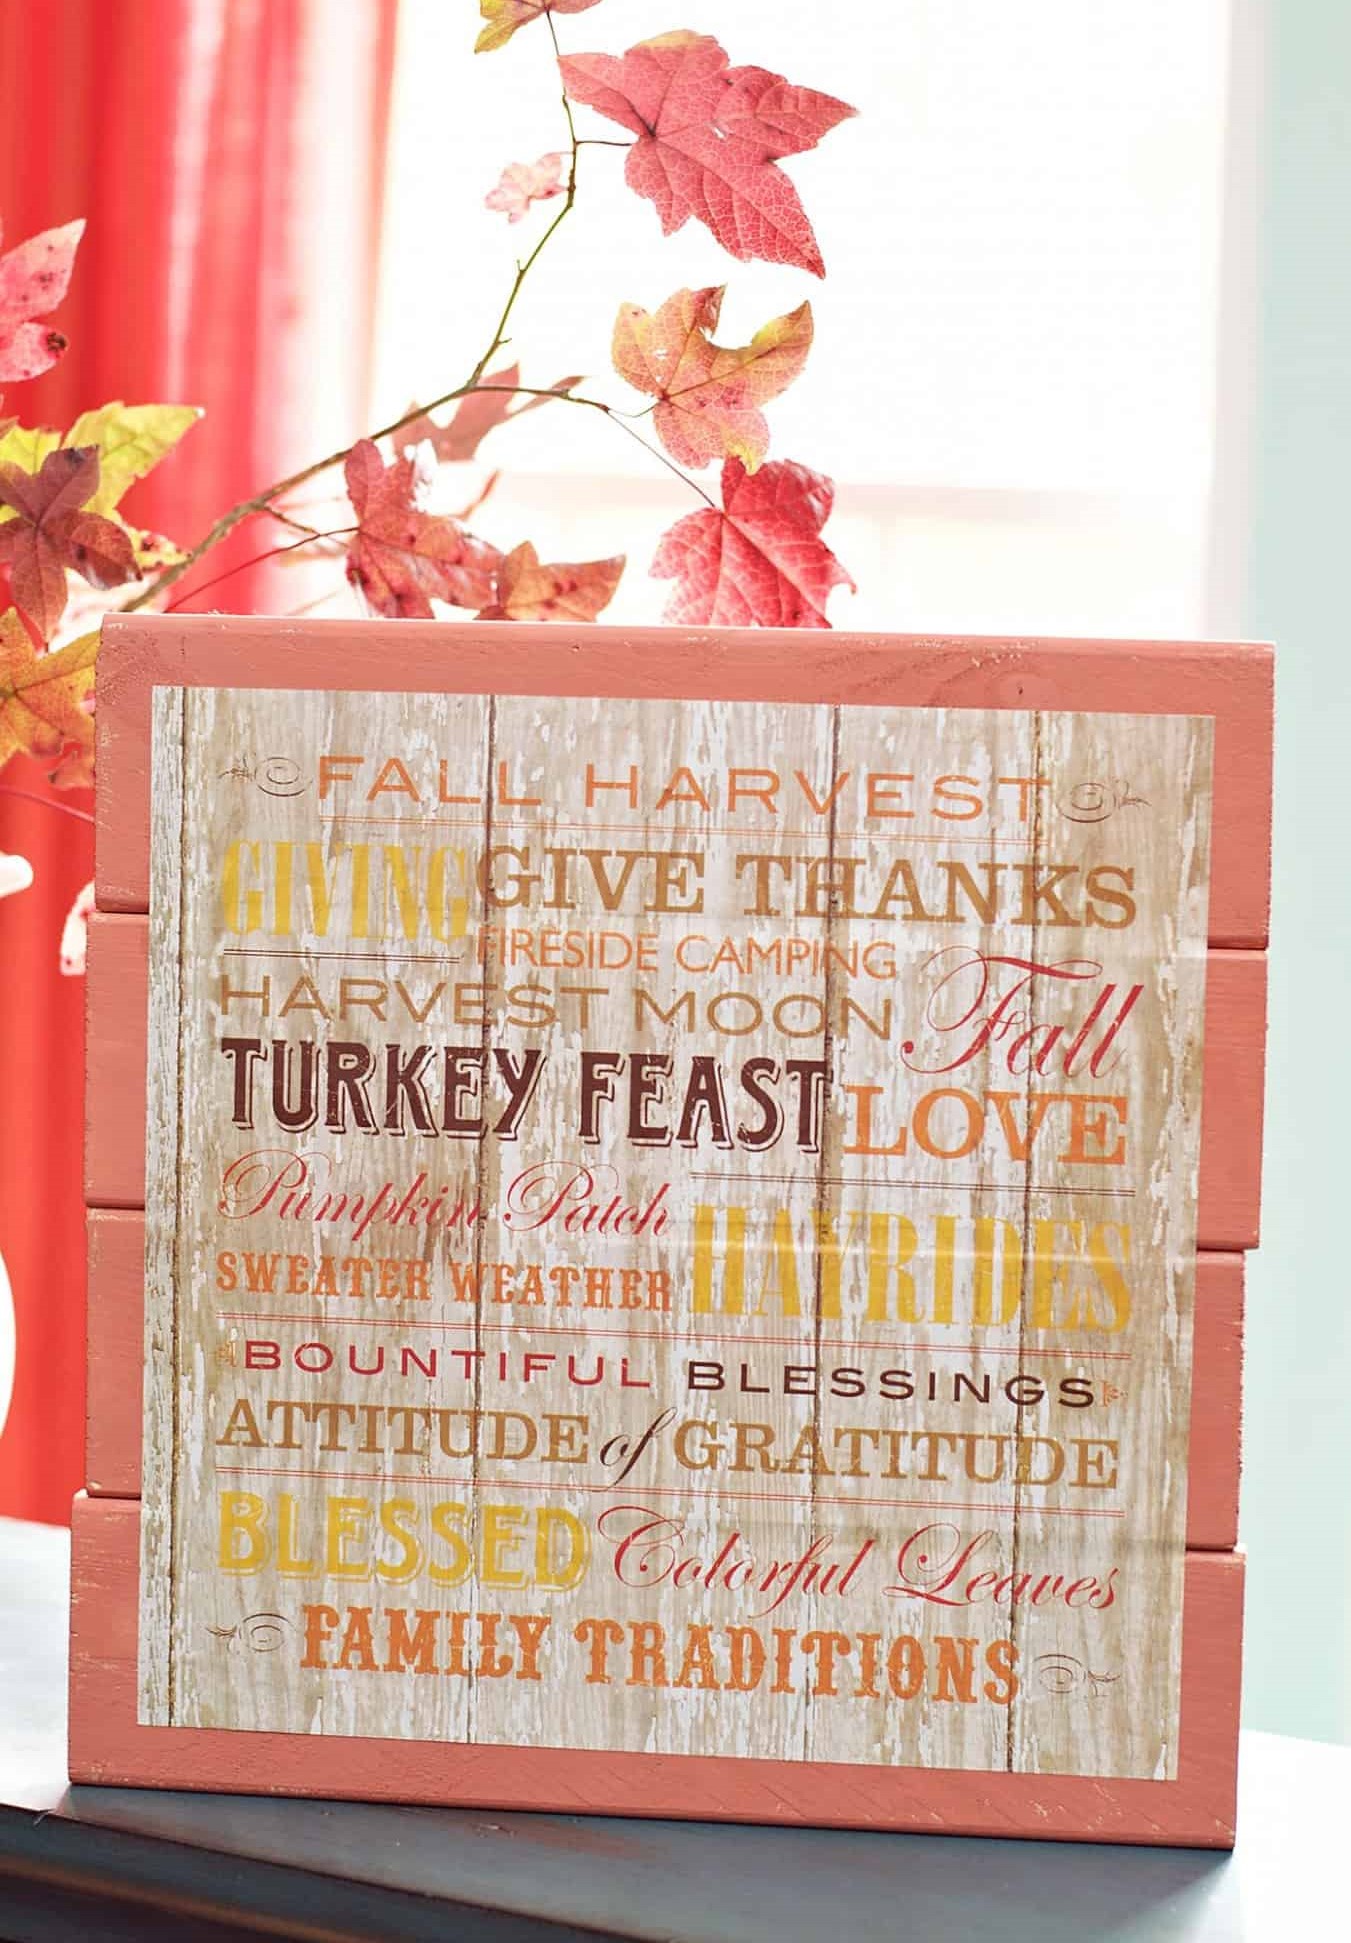 FALL HARVEST
GIVING GIVE THANKS
FIRESIDE CAMPING
HARVEST MOON Fall
TURKEY FEAST LOVE
Pumpkin Patch HAYRIDES
SWEATER WEATHER
BOUNTIFUL BLESSINGS
ATTITUDE of GRATITUDE
BLESSED Colorful Leaves
FAMILY TRADITIONS